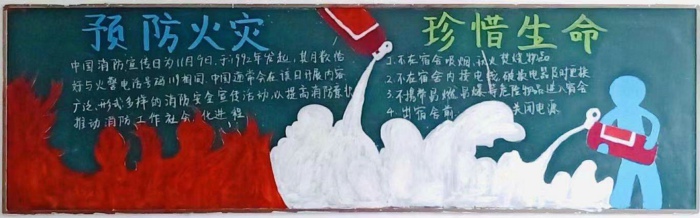 预防火灾
珍惜生命
中国消防宣传日为11月9日,于1992年发起,其月数恰
好与火警电话号码119相同,中国通常会在该日开展内容
广泛、形式多样的消防安全宣传活动,以提高消防意识
推动消防工作社会化进程
1.不在宿舍吸烟、焚烧物品
2.不在宿舍内接电线,破损电器及时更换
3.不携带易燃易爆等危险物品进入宿舍
4.出宿舍前 关闭电源